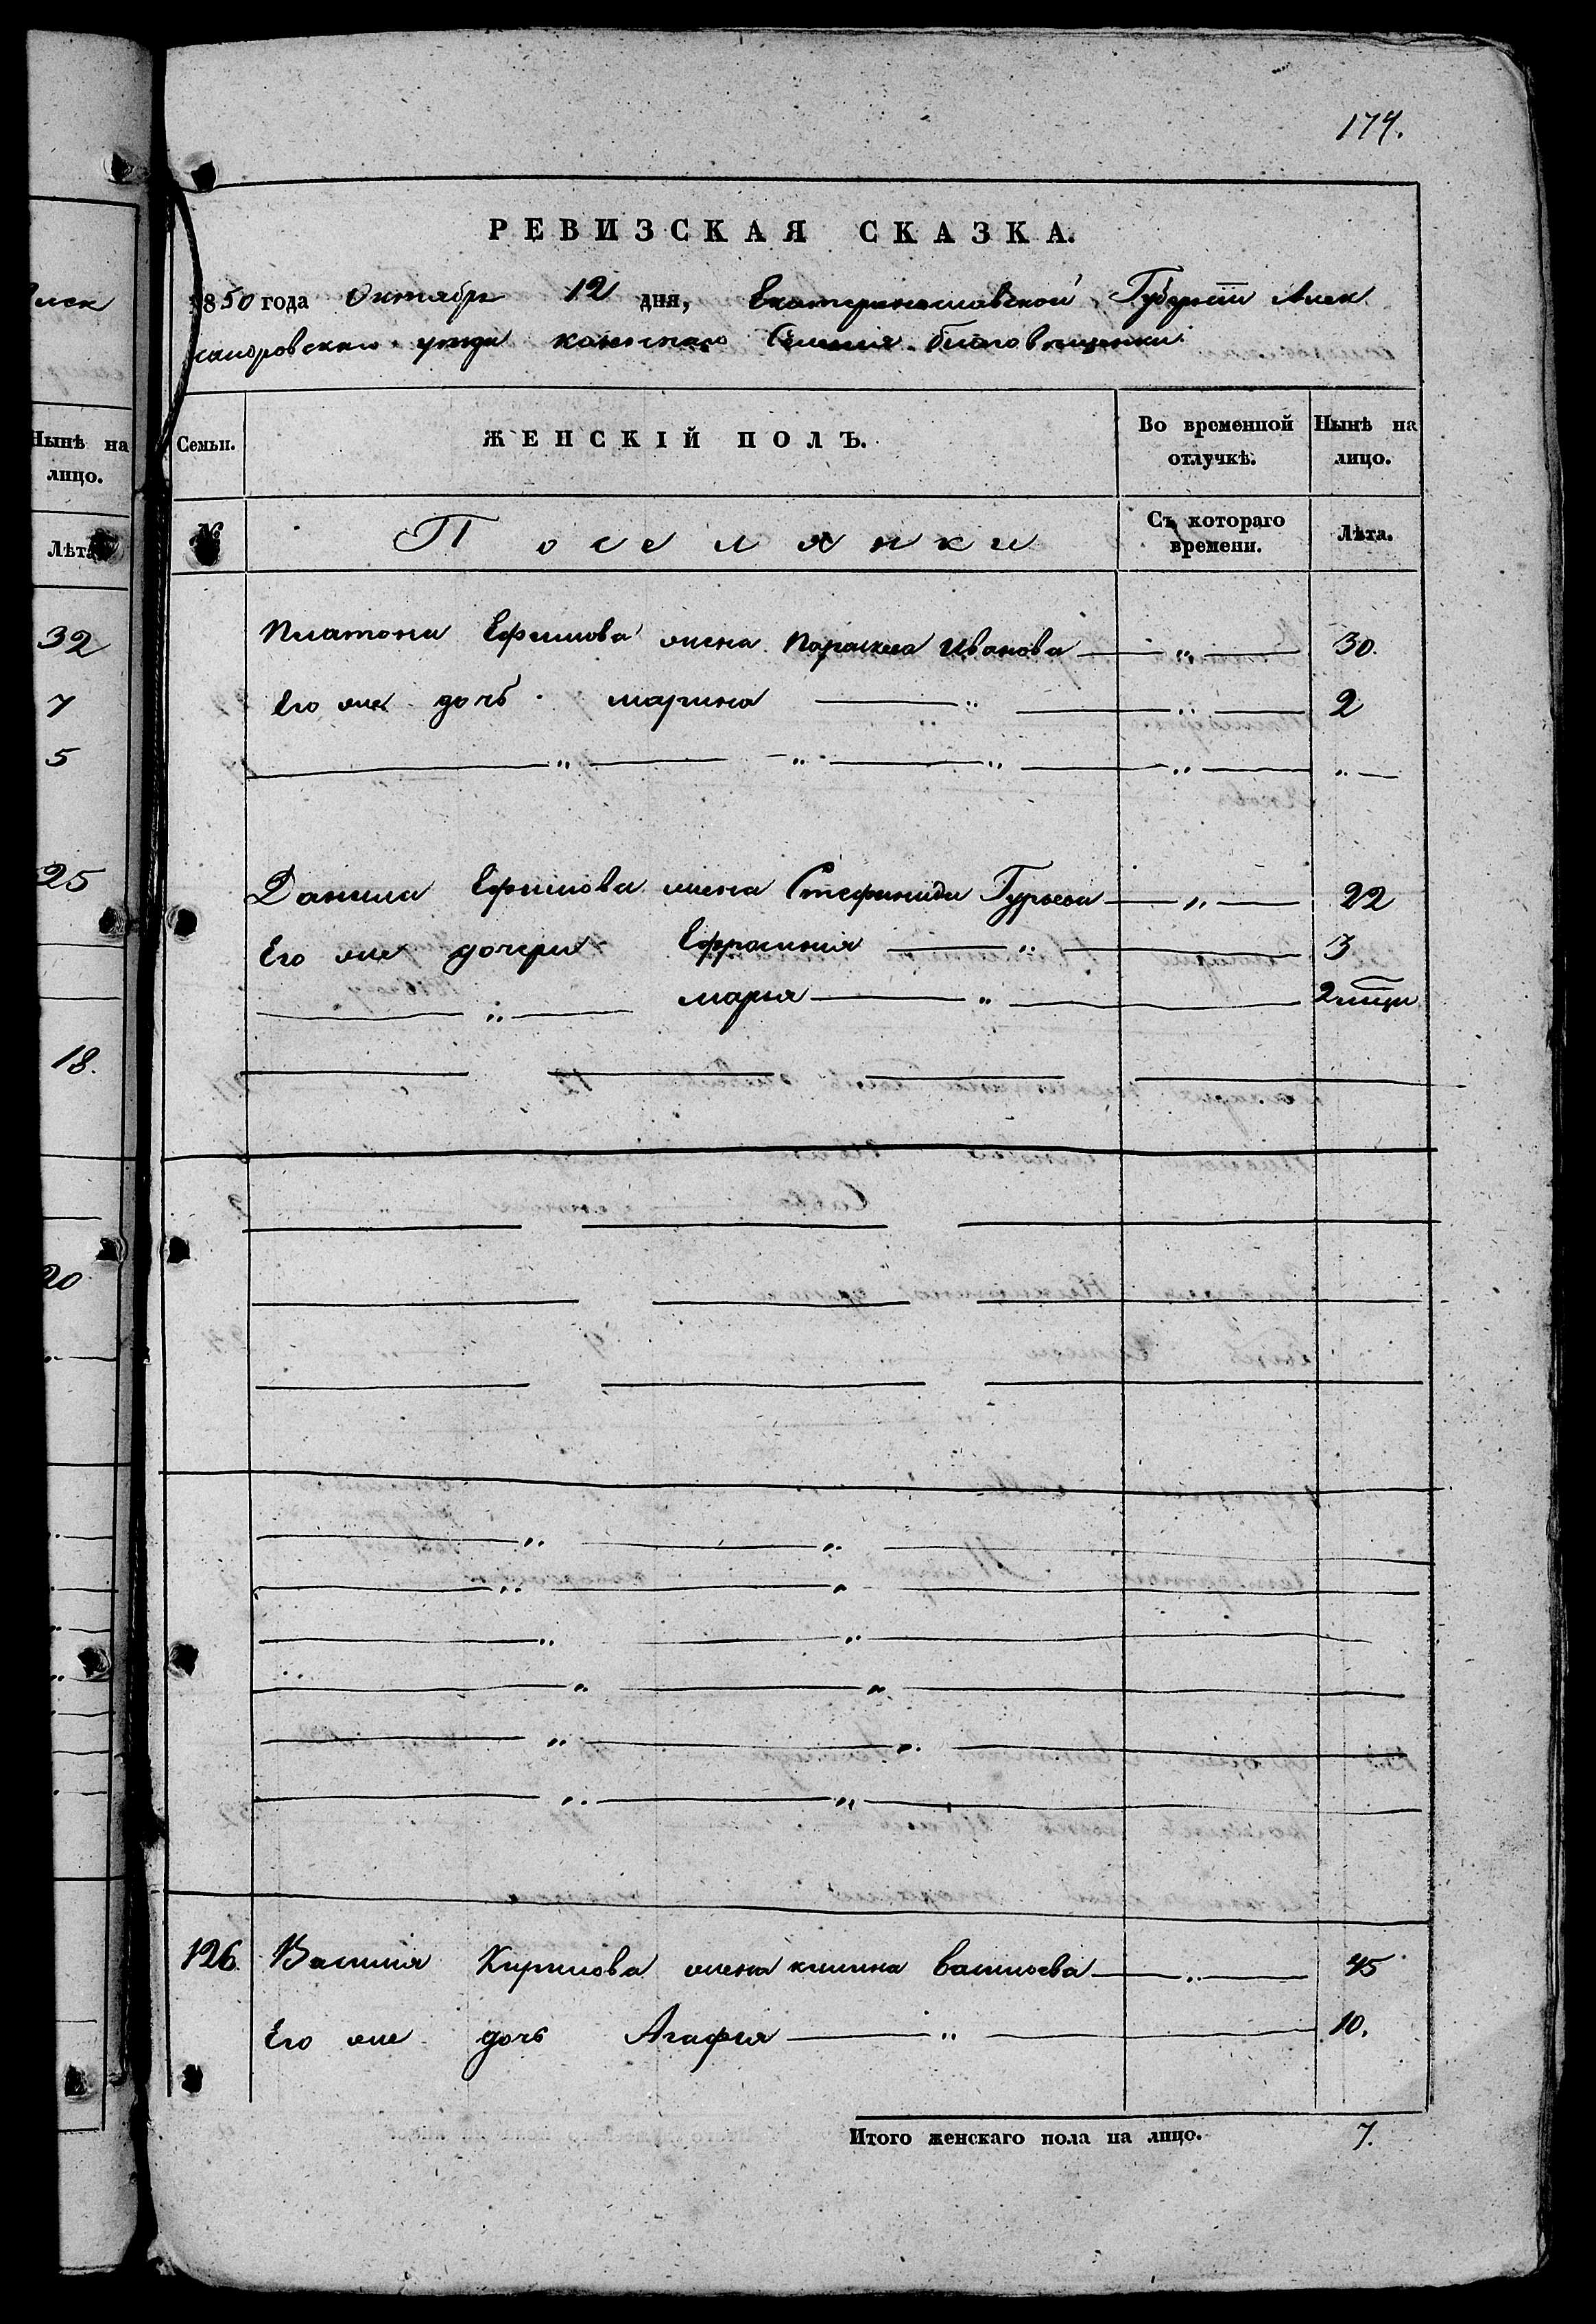 174.
РЕВИЗСКАЯ СКАЗКА.
1850 года Октября 12 дня, Екатеринославской Губернiи Алек
сандровскаго уезда казеннаго Селенiя Белогорки
Семьи.
ЖЕНСКIЙ ПОЛЪ.
Во временной отлучкѣ.
Нынѣ на лицо.
№
Поселянки
Съ котораго времени.
Лѣта.
Платона Ефимова жена Параскева Иванова — „ — 30.
Его же дочь марина — „ — „ — 2
— „ — „ — „ — „ — „ —
Данила Ефимова жена Стефанида Гурьева — „ — 22
Его же дочери Ефросинiя — „ — 3
— „ — марья — „ — 2 мца
126. Василия Кирилова жена Василиева — „ — 45
Его же дочь Агафья — „ — 10.
Итого женскаго пола на лицо. 7.
лек
Нынѣ на
лицо.
Лѣта
32
7
5
25
18.
20